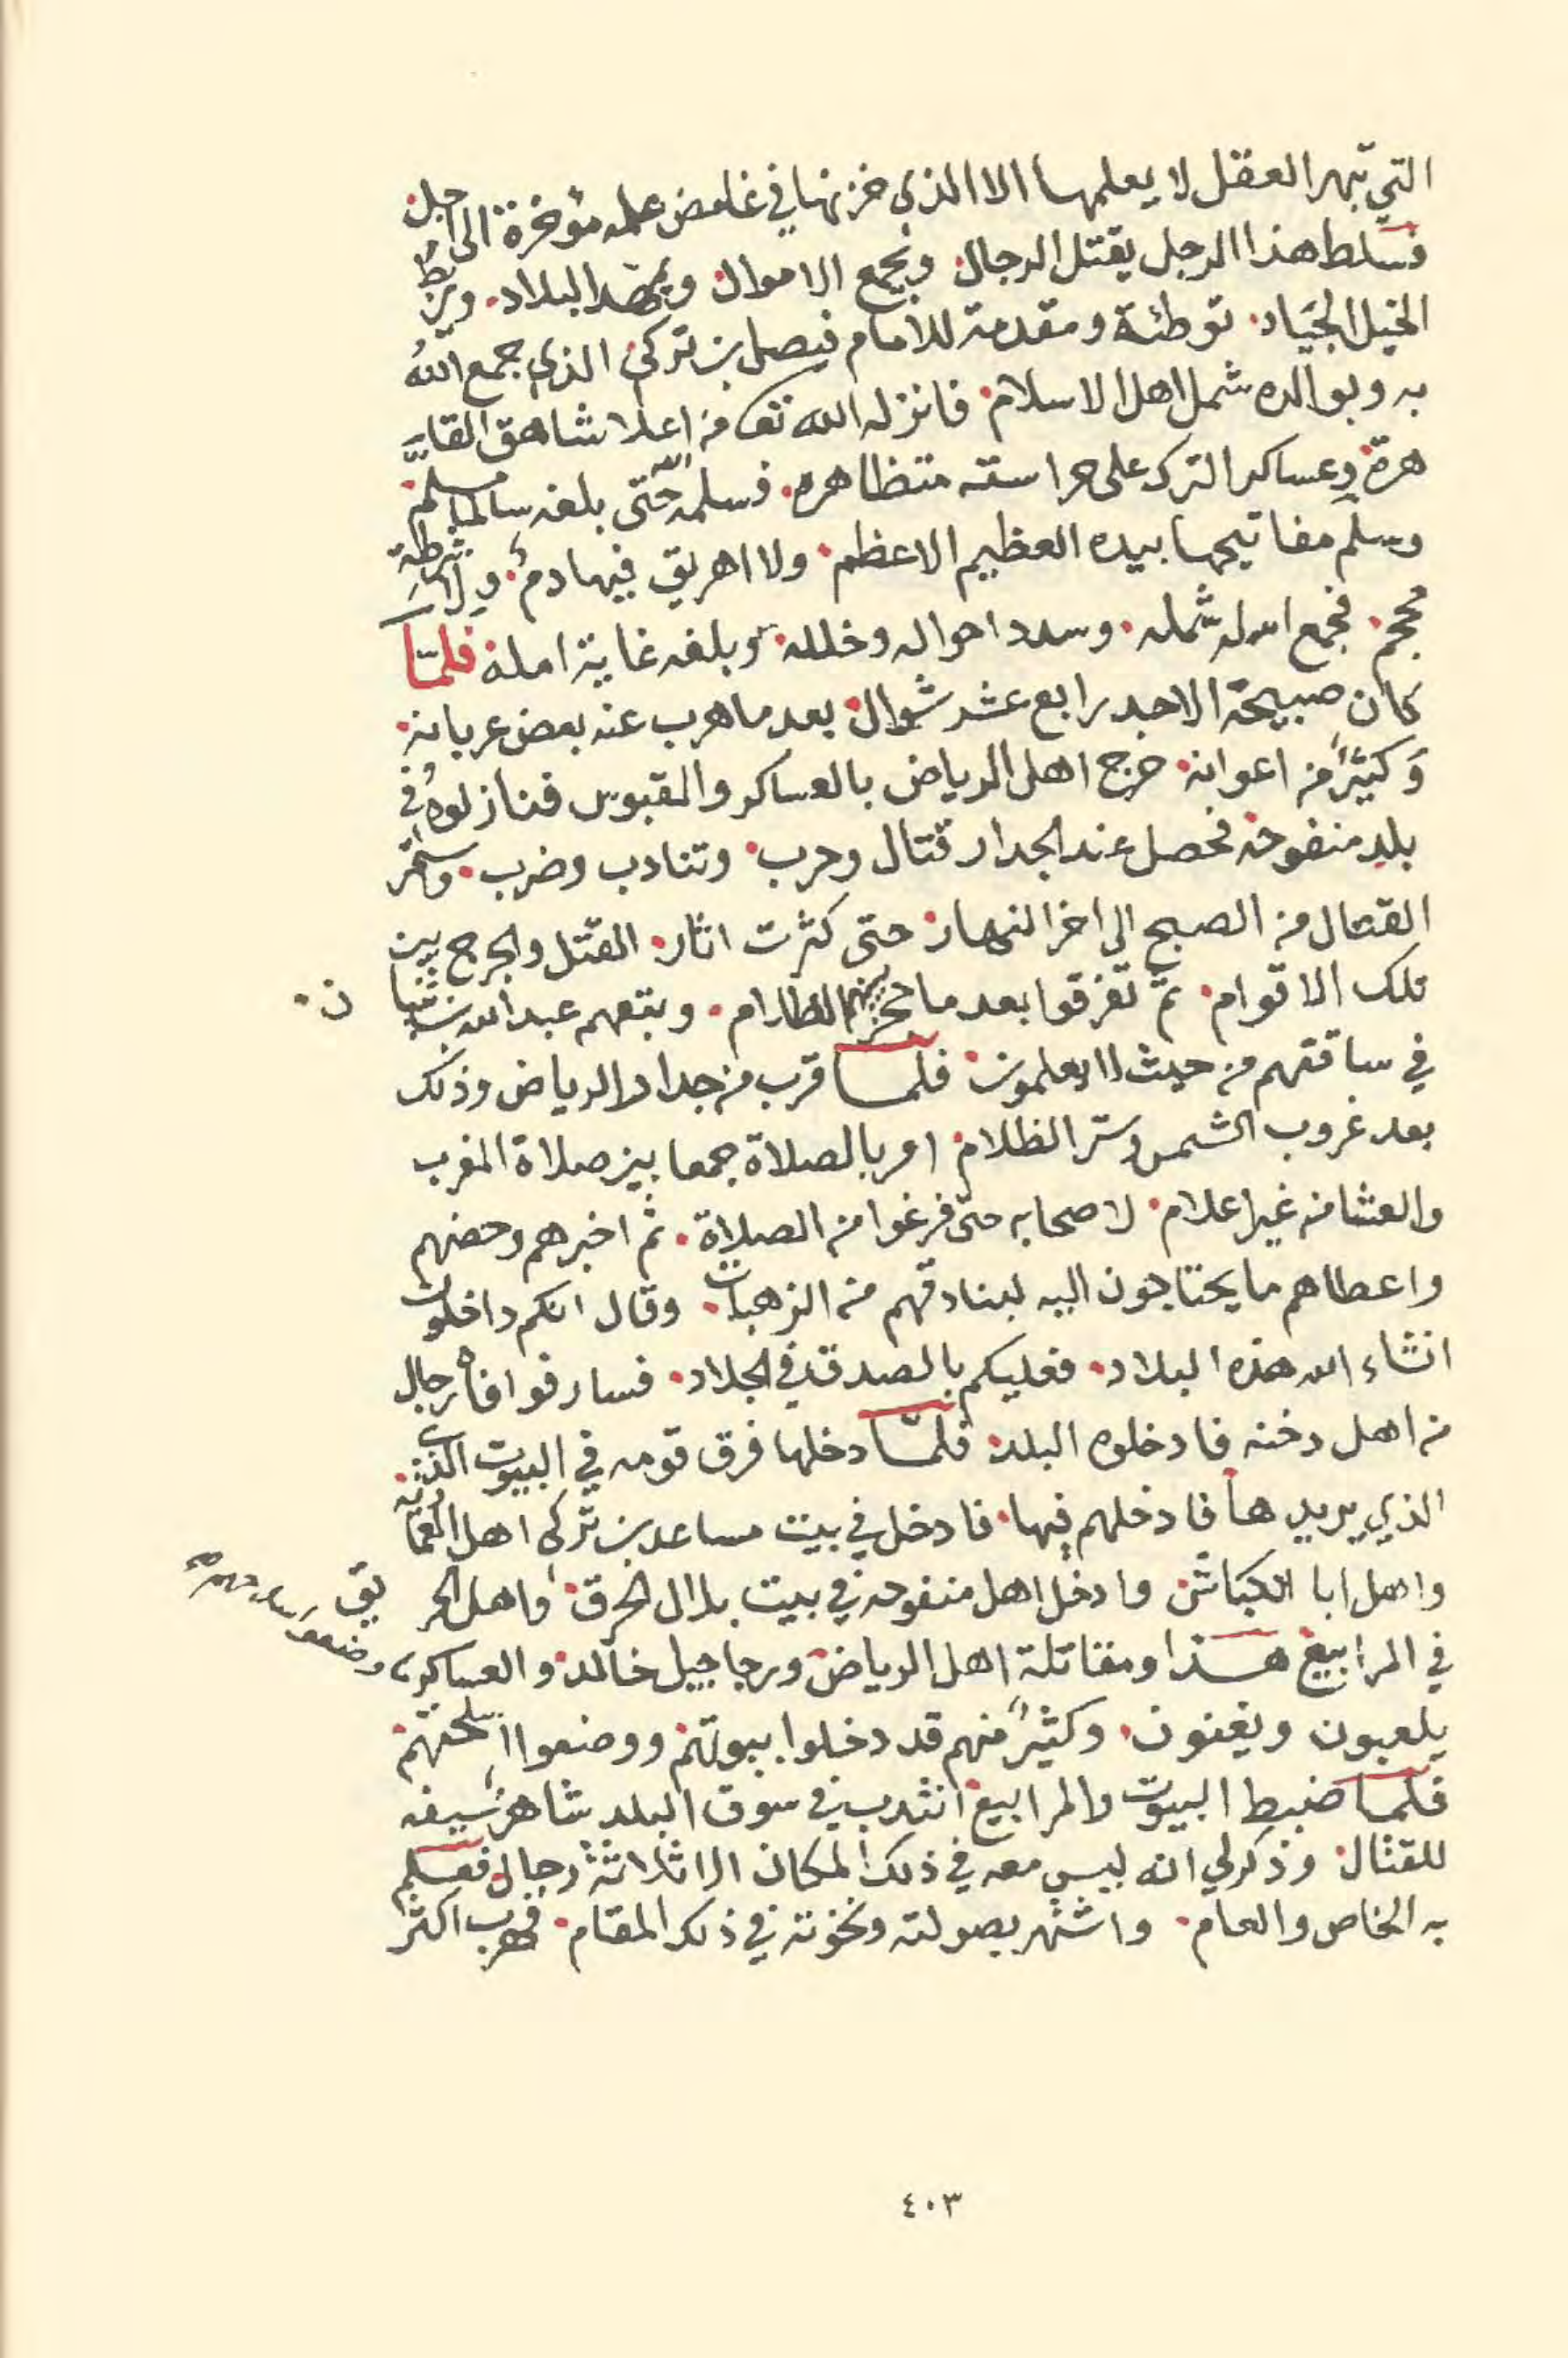 التي تبهر العقل لا يعلمها الا الذي خزنها في غامض علمه مؤخرة الى اجل
فسلط هذا الرجل يقتل الرجال ويجمع الاموال ويمهد البلاد ويربط
الخيل الجياد توطئة ومقدمة للامام فيصل بن تركي الذي جمع الله
به وبوالده شمل اهل الاسلام فانزله الله تعـ من اعلا شاهق القا
هرة وعساكر الترك على حراسته متظاهره فسلمه الله حتى بلغه سالما مسلم
وسلم مفاتيحها بيده العظيم الاعظم ولا اهريق فيها دم ولا شرطة
محجم فجمع الله شمله وسدد احواله وخلله وبلغه غاية امله فلما
كان صبيحة الاحد رابع عشر شوال بعد ما هرب عنه بعض عربانه
وكثيرا من اعوانه خرج اهل الرياض بالعساكر والقبوس فنازلوه في
بلد منفوحه فحصل عند الجدار قتال وحرب وتنادب وضرب واستمر
القتال من الصبح الى اخر النهار حتى كثرت اثار القتل والجرح بين
تلك الاقوام ثم تفرقوا بعد ما حجز بينهم الظلام وتبعهم عبدالله بن ثنيا ن
في ساقتهم من حيث لا يعلمون فلما قرب من جدار الرياض وذلك
بعد غروب الشمس وستر الظلام امر بالصلاة جمعا بين صلاة المغرب
والعشا من غير اعلام لاصحابه حتى فرغوا من الصلاة ثم اخبرهم وحضهم
واعطاهم ما يحتاجون اليه لبنادقهم من الزهبات وقال انكم داخلون
انشاء الله هذه البلاد فعليكم بالصدق في الجلاد فسار فوافاه رجال
من اهل دخنه فادخلوه البلد فلما دخلها فرق قومه في البيوت
الذي يريدها فادخلهم فيها فادخل في بيت مساعد بن تركي اهل العماريه
واهل ابا الكباش وادخل اهل منفوحه في بيت بلال الحرق واهل الحر يق
في المرابيع هذا ومقاتلة اهل الرياض ورجاجيل خالد والعساكر
يلعبون ويغنون وكثيرا منهم قد دخلوا بيوتهم ووضعوا اسلحتهم
فلما ضبط البيوت والمرابيع انتدب في سوق البلد شاهر سيفه
للقتال وذكر لي انه ليس معه في ذلك المكان الا ثلاثة رجال فعلم
به الخاص والعام واشتهر بصولته ونخوته في ذلك المقام فهرب اكثر
٤٠٣